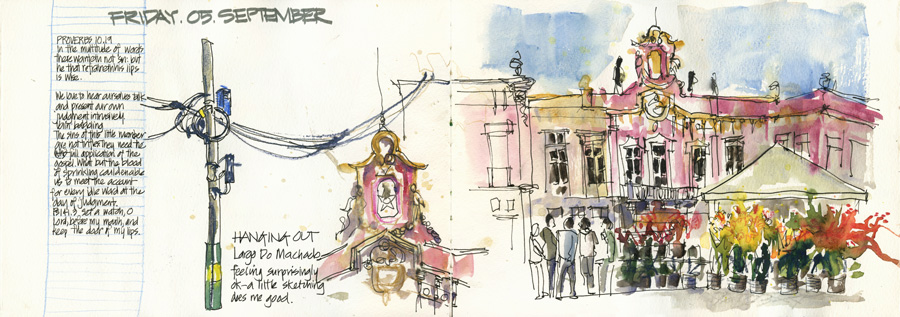 FRIDAY. 05. SEPTEMBER
PROVERBS 10.19
In the multitude of words
there wanteth not sin: but
he that refraineth his lips
is wise.
We love to hear ourselves talk
and present our own
judgment intrusively
babbling
The sins of this little member
are not trifles they need the
full application of the
gospel. What but the blood
of sprinkling could enable
us to meet the account
for every idle word at the
day of judgment.
PS 141.3 Set a watch, O
Lord, before my mouth, and
keep the door of my lips.
HANGING OUT
Largo Do Machado
feeling surprisingly
ok - a little sketching
does me good.